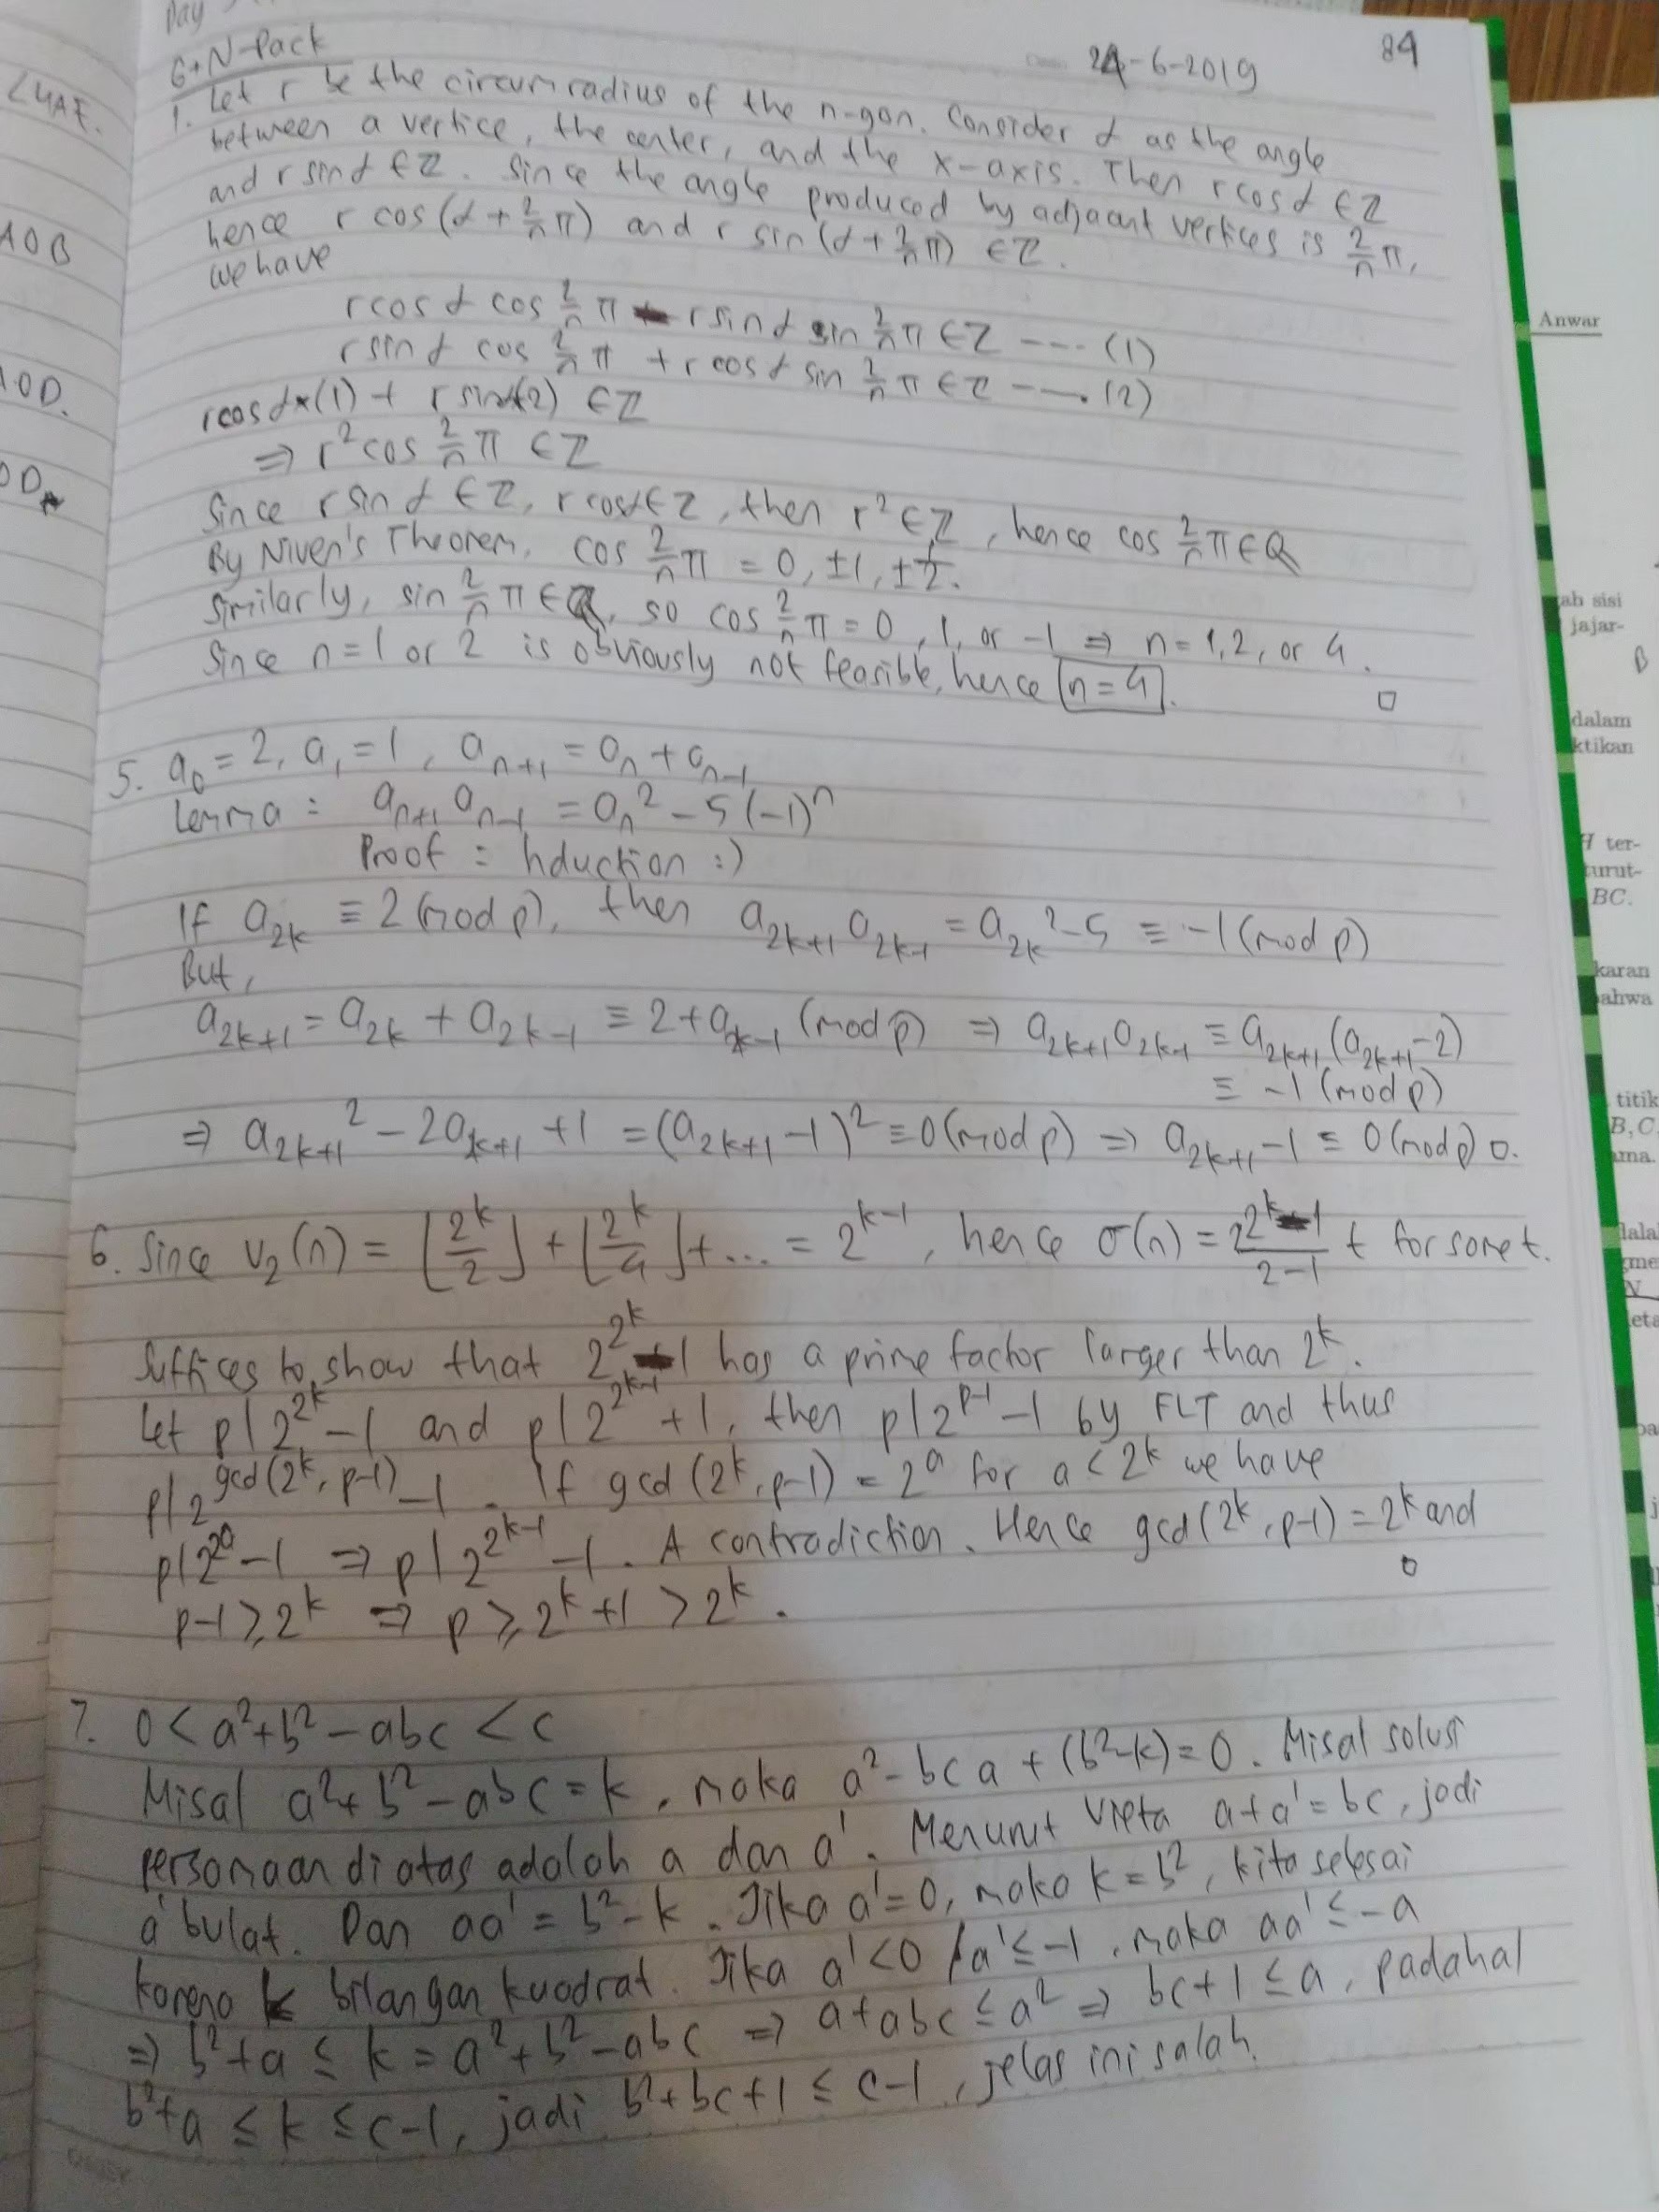 Day
G+N-Pack
24-6-2019
84
1. Let r be the circumradius of the n-gon. Consider α as the angle
between a vertice, the center, and the x-axis. Then r cos α ∈ ℤ
and r sin α ∈ ℤ. Since the angle produced by adjacent vertices is 2/n π,
hence r cos(α + 2/n π) and r sin(α + 2/n π) ∈ ℤ.
we have
r cos α cos 2/n π - r sin α sin 2/n π ∈ ℤ --- (1)
r sin α cos 2/n π + r cos α sin 2/n π ∈ ℤ --- (2)
r cos α × (1) + r sin α × (2) ∈ ℤ
⇒ r² cos 2/n π ∈ ℤ
Since r sin α ∈ ℤ, r cos α ∈ ℤ, then r² ∈ ℤ, hence cos 2/n π ∈ ℚ
By Niven's Theorem, cos 2/n π = 0, ±1, ±1/2.
Similarly, sin 2/n π ∈ ℚ, so cos 2/n π = 0, 1, or -1 ⇒ n = 1, 2, or 4.
Since n=1 or 2 is obviously not feasible, hence n=4. □
5. a₀ = 2, a₁ = 1, aₙ₊₁ = aₙ + aₙ₋₁
Lemma : aₙ₊₁ aₙ₋₁ = aₙ² - 5(-1)ⁿ
Proof : Induction :)
If a₂ₖ ≡ 2 (mod p), then a₂ₖ₊₁ a₂ₖ₋₁ = a₂ₖ² - 5 ≡ -1 (mod p)
But,
a₂ₖ₊₁ = a₂ₖ + a₂ₖ₋₁ ≡ 2 + a₂ₖ₋₁ (mod p) ⇒ a₂ₖ₊₁ a₂ₖ₋₁ ≡ a₂ₖ₊₁ (a₂ₖ₊₁ - 2)
≡ -1 (mod p)
⇒ a₂ₖ₊₁² - 2a₂ₖ₊₁ + 1 = (a₂ₖ₊₁ - 1)² ≡ 0 (mod p) ⇒ a₂ₖ₊₁ - 1 ≡ 0 (mod p) □.
6. Since v₂(n) = ⌊2^k/2⌋ + ⌊2^k/4⌋ + ... = 2^k-1, hence σ(n) = (2^2^k - 1)/(2-1) t for some t.
Suffices to show that 2^2^k - 1 has a prime factor larger than 2^k.
Let p | 2^2^k - 1 and p | 2^2^(k-1) + 1, then p | 2^(p-1) - 1 by FLT and thus
p | 2^gcd(2^k, p-1) - 1. If gcd(2^k, p-1) = 2^a for a < 2^k we have
p | 2^2^a - 1 ⇒ p | 2^2^(k-1) - 1. A contradiction. Hence gcd(2^k, p-1) = 2^k and
p-1 ≥ 2^k ⇒ p ≥ 2^k + 1 > 2^k. □
7. 0 < a² + b² - abc < c
Misal a² + b² - abc = k, maka a² - bca + (b² - k) = 0. Misal solusi
persamaan di atas adalah a dan a'. Menurut Vieta a + a' = bc, jadi
a' bulat. Dan aa' = b² - k. Jika a' = 0, maka k = b², kita selesai
karena k bilangan kuadrat. Jika a' < 0 / a' ≤ -1, maka aa' ≤ -a
⇒ b² + a ≤ k = a² + b² - abc ⇒ a + abc ≤ a² ⇒ bc + 1 ≤ a, padahal
b² + a ≤ k ≤ c-1, jadi b² + bc + 1 ≤ c-1, jelas ini salah.
AOB
Anwar
ah sisi
jajar-
B
dalam
ktikan
H ter-
turut-
BC.
karan
ahwa
titik
B, C
ma.